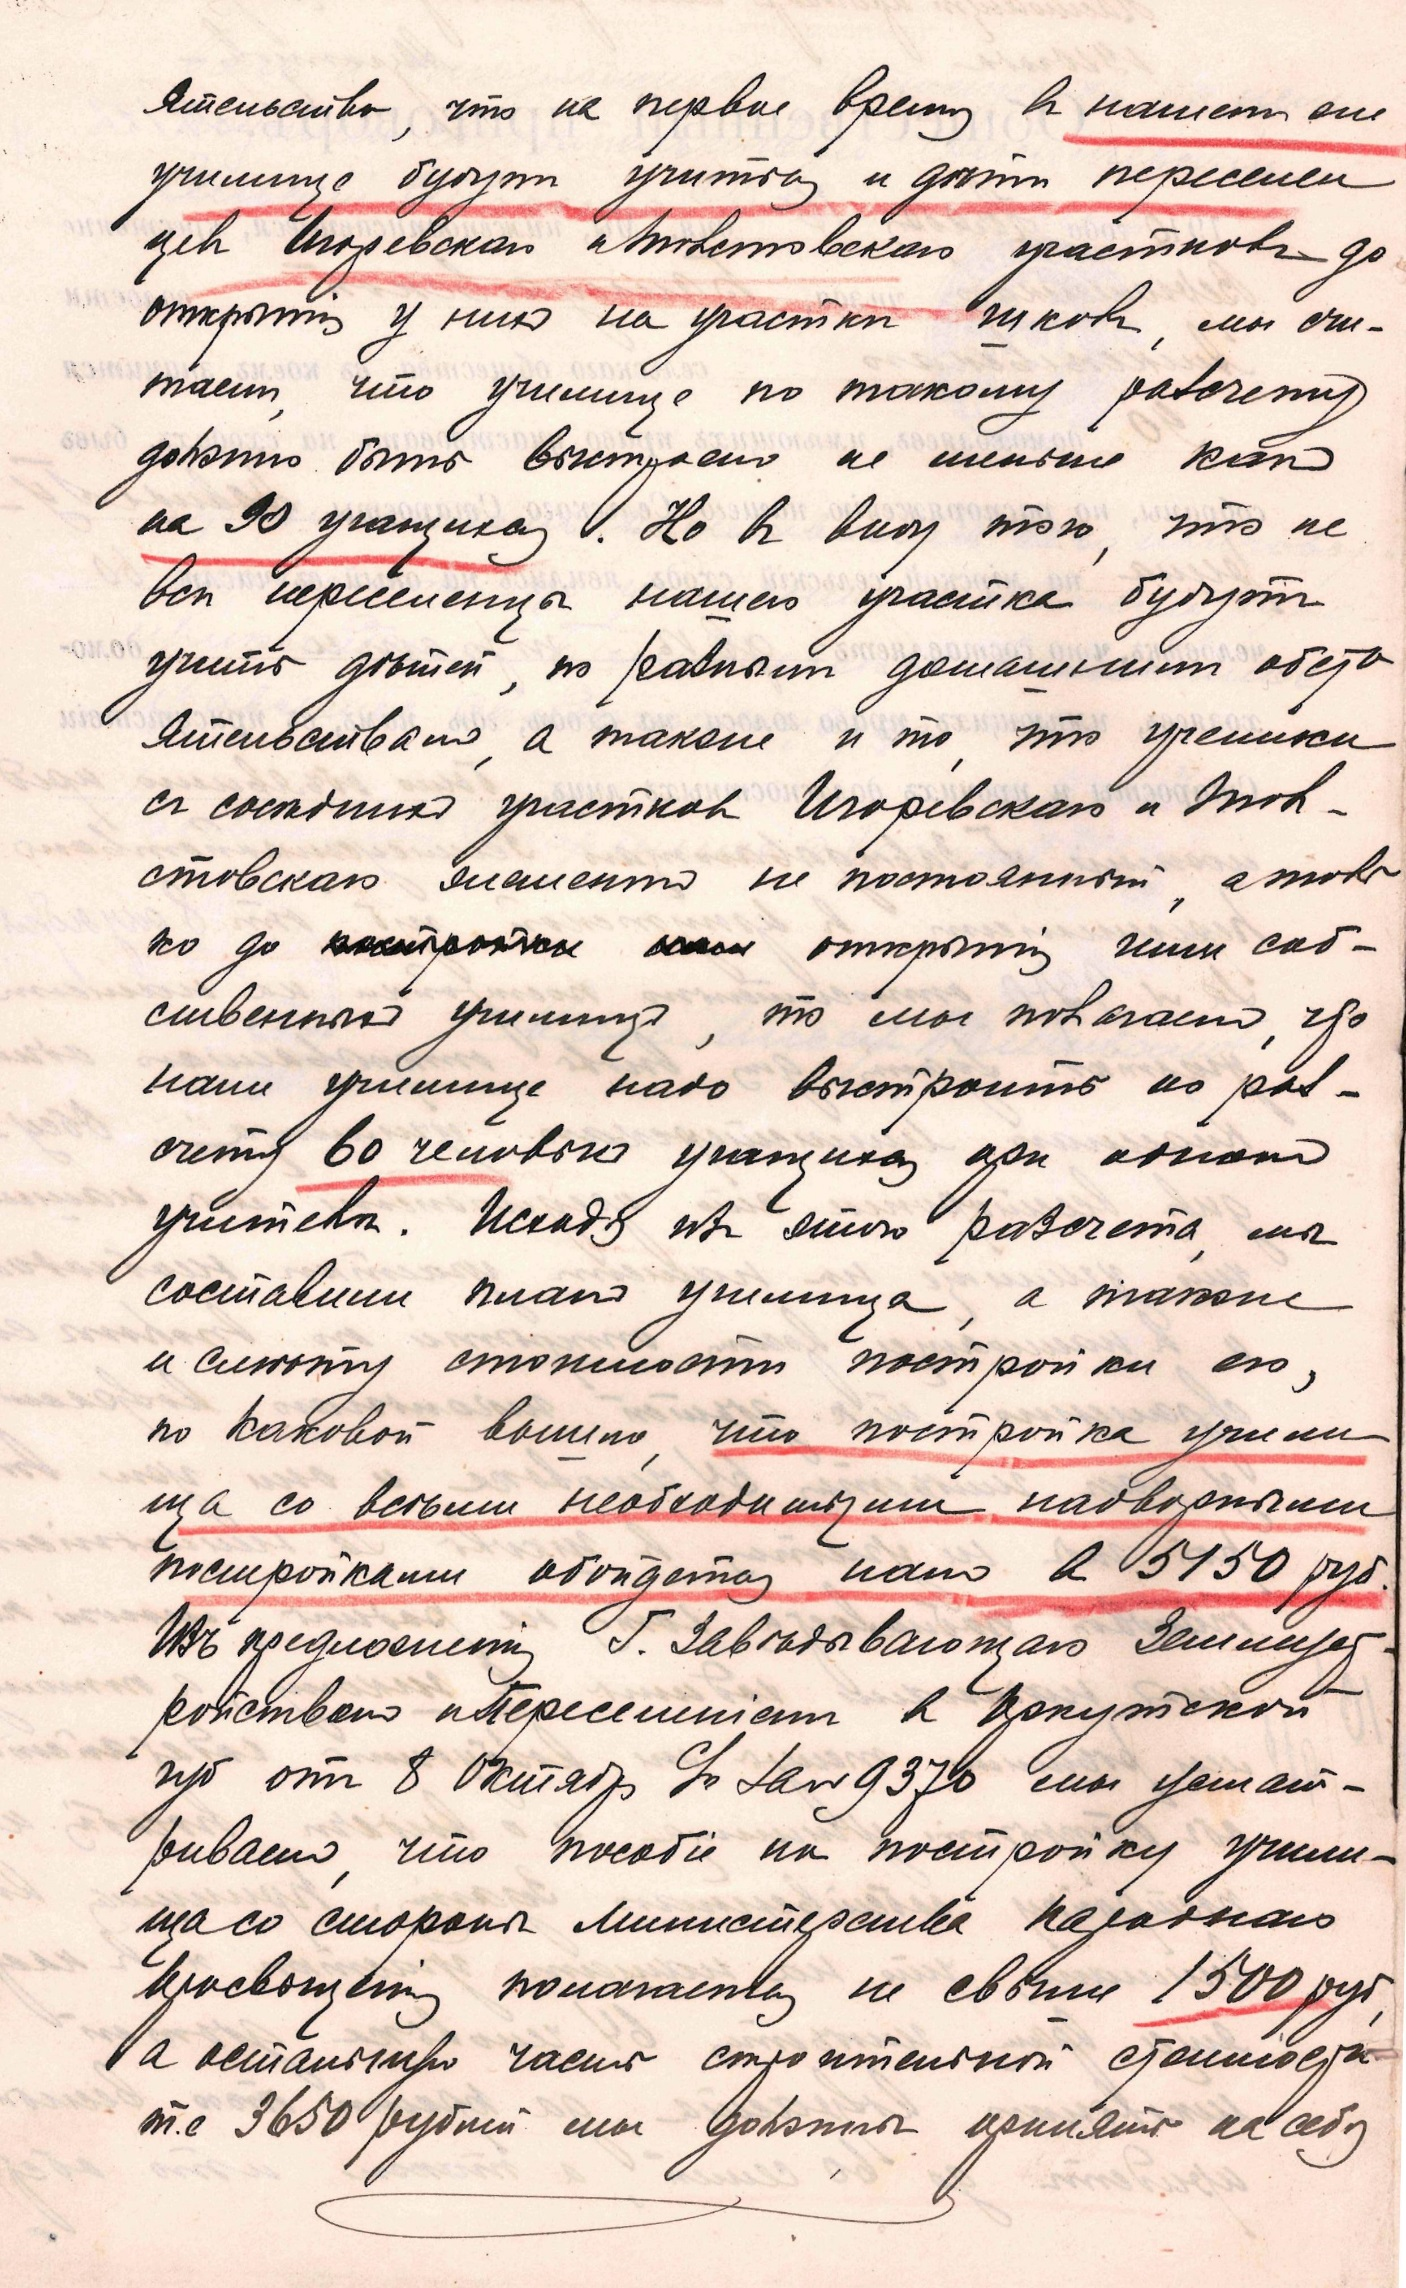 ятельство, что на первое время въ нашем же
училище будутъ учиться и дѣти переселен
цевъ Игоревскаго и Толстовскаго участковъ до
открытія у нихъ на участкѣ школъ, мы счи-
таемъ, что училище по такому разсчету
должно быть выстроено не меньше какъ
на 90 учащихся. Но въ виду того, что не
всѣ переселенцы нашего участка будутъ
учить дѣтей, по разнымъ домашнимъ обсто
ятельствамъ, а также и то, что ученики
съ сосѣднихъ участковъ Игоревскаго и Тол-
стовскаго элементъ не постоянный, а толь
ко до постройки ими открытія ими соб-
ственныхъ училищъ, то мы полагаемъ, что
наше училище надо выстроить по раз-
счету 60 человѣкъ учащихся при одномъ
учителѣ. Исходя изъ этого разсчета, мы
составили планъ училища, а также
и смѣту стоимости постройки его,
по каковой вышло, что постройка учили
ща со всѣми необходимыми надворными
постройками обойдется намъ въ 5150 руб.
Изъ предложенія Г. Завѣдывающаго Землеуст-
ройствомъ и Переселеніемъ въ Иркутской
губ отъ 8 Октября за № 9370 мы усмат-
риваемъ, что пособіе на постройку учили-
ща со стороны Министерства Народнаго
Просвѣщенія полагается не свыше 1500 руб,
а остальную часть строительной стоимости
т.е 3650 рублей мы должны принять на себя